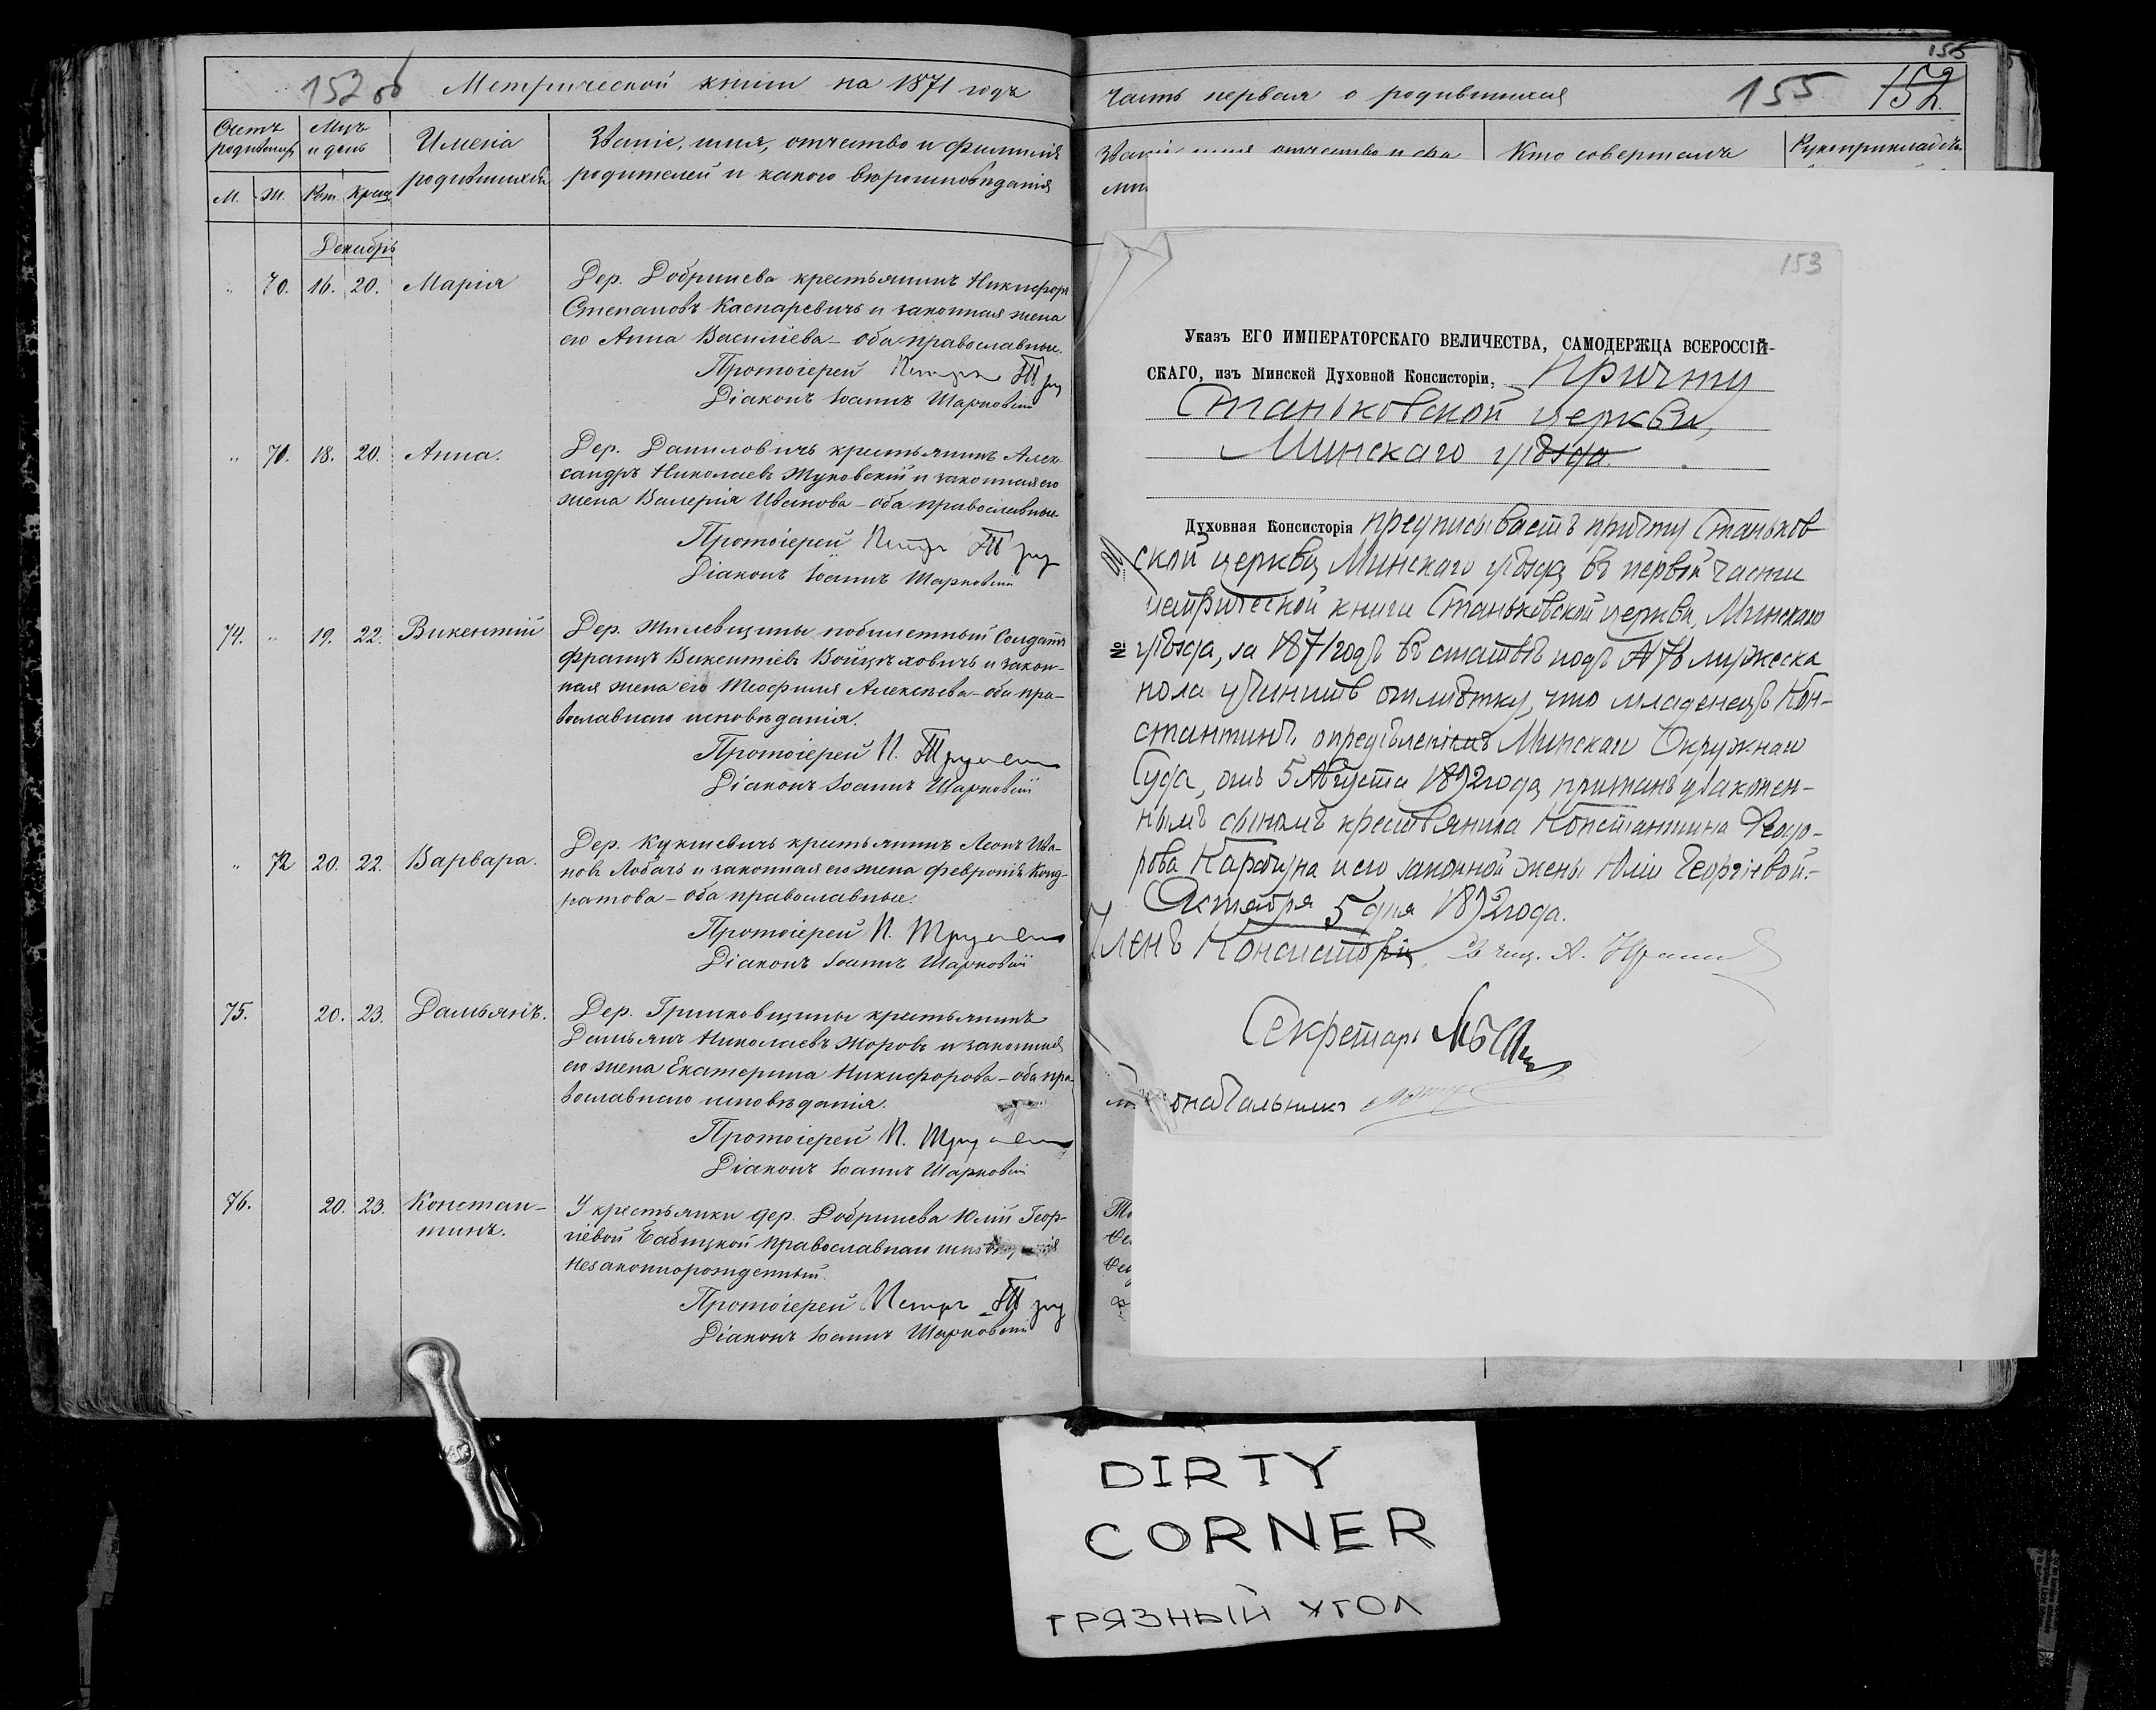 152 об Метрической книги на 1871 годъ
Счетъ родившихся
Мцъ и день
Имена родившихся
Званіе, имя, отчество и фамилія
родителей и какого вѣроисповѣданія
М. Ж. Рож. Крещ.
Декабрь
" 70. 16. 20. Марія
Дер. Добринева крестьянинъ Никифоръ
Степановъ Каспаревичъ и законная жена
его Анна Василіева - оба православные.
Протоіерей Петръ
Діаконъ Іоаннъ Шарковскій
" 71. 18. 20. Анна.
Дер. Даниловичъ крестьянинъ Алек-
сандръ Николаевъ Жуковскій и законная его
жена Валерія Иванова - оба православные
Протоіерей Петръ
Діаконъ Іоаннъ Шарковскій
74. " 19. 22. Викентій
Дер. Жилевщины побилетный Солдатъ
Францъ Викентіевъ Войцѣховичъ и закон-
ная жена его Теофилія Алексѣева - оба пра-
вославнаго исповѣданія.
Протоіерей П.
Діаконъ Іоаннъ Шарковскій
" 72 20. 22. Варвара.
Дер. Кукшевичъ крестьянинъ Леонъ Ива-
новъ Лобачъ и законная его жена Февронія Конд-
ратова - оба православные.
Протоіерей П.
Діаконъ Іоаннъ Шарковскій
75. 20. 23. Дамьянъ.
Дер. Гриньковщины крестьянинъ
Дамьянъ Николаевъ Жоровъ и законная
его жена Екатерина Никифорова - оба пра-
вославнаго исповѣданія.
Протоіерей П.
Діаконъ Іоаннъ Шарковскій
76. 20. 23. Констан-
тинъ.
У крестьянки дер. Добринева Юліи Геор-
гіевой Бабицкой православнаго
Незаконнорожденный.
Протоіерей Петръ
Діаконъ Іоаннъ Шарковскій
155
часть первая о родившихся 155 152
Званіе имя отчество и фа
Кто совершалъ
Рукоприкладств
153
Указъ ЕГО ИМПЕРАТОРСКАГО ВЕЛИЧЕСТВА, САМОДЕРЖЦА ВСЕРОССІЙ-
СКАГО, изъ Минской Духовной Консисторіи, Причту
Станьковской церкви,
Минскаго уѣзда.
Духовная Консисторія предписываетъ причту Станьков
ской церкви Минскаго уѣзда въ первой части
метрической книги Станьковской церкви, Минскаго
№ уѣзда, за 1871 годъ въ статьѣ подъ № 76 мужеска
пола учинить отмѣтку, что младенецъ Кон-
стантинъ опредѣленіемъ Минскаго Окружнаго
Суда, отъ 5 Августа 1892 года признанъ узаконен-
нымъ сыномъ крестьянина Константина Ѳеодо-
рова Карабуна и его законной жены Юліи Георгіевой.-
Октября 5 дня 1892 года.
Членъ Консисторіи, Свящ. А.
Секретарь
оначальникъ
DIRTY
CORNER
ГРЯЗНЫЙ УГОЛ